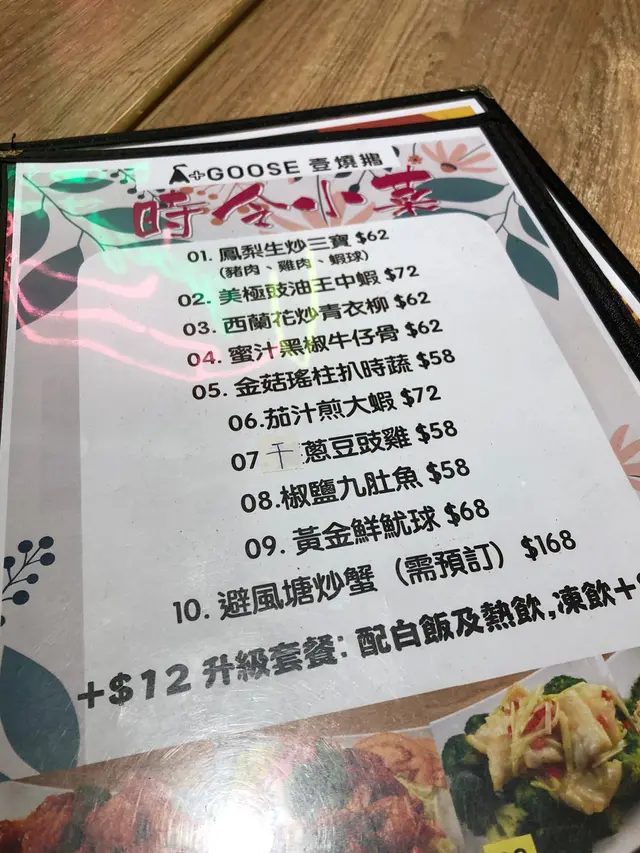 GOOSE 壹燒鵝
時令小菜
01. 鳳梨生炒三寶 $62
(豬肉、雞肉、蝦球)
02. 美極豉油王中蝦 $72
03. 西蘭花炒青衣柳 $62
04. 蜜汁黑椒牛仔骨 $62
05. 金菇瑤柱扒時蔬 $58
06.茄汁煎大蝦 $72
07 干蔥豆豉雞 $58
08.椒鹽九肚魚 $58
09. 黃金鮮魷球 $68
10. 避風塘炒蟹（需預訂）$168
+$12 升級套餐: 配白飯及熱飲,凍飲+